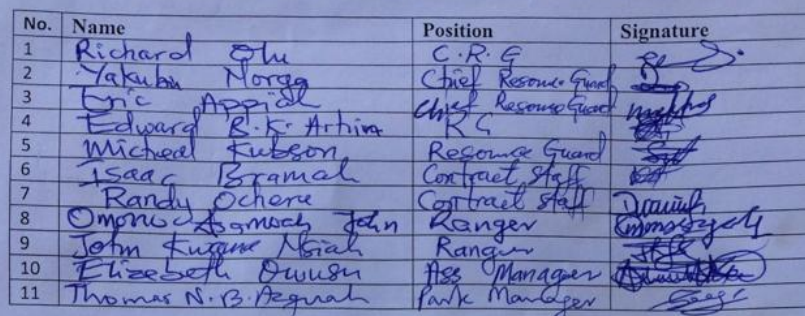 No. Name Position Signature
1 Richard Olu C.R.G
2 Yakubu Norga Chief Resource Guard
3 Eric Appiah Chief Resource Guard
4 Edward B.K. Arhin R G
5 Micheal Kubson Resource Guard
6 Isaac Bramah Contract Staff
7 Randy Ochere Contract Staff
8 John Ranger
9 John Nsiah Ranger
10 Elizebeth Owusu Ass Manager
11 Thomas N.B. Acquah Park Manager